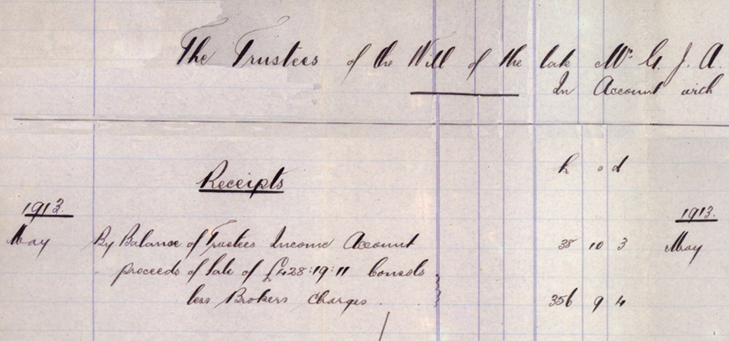 The Trustees of the Will of the late Mr G. J. A.
In Account with
Receipts
£ s d
1913.
1913.
May By Balance of Trustees Income Account 38 10 3 May
proceeds of Sale of £428:19:11 Consols
less Brokers Charges. 356 9 4